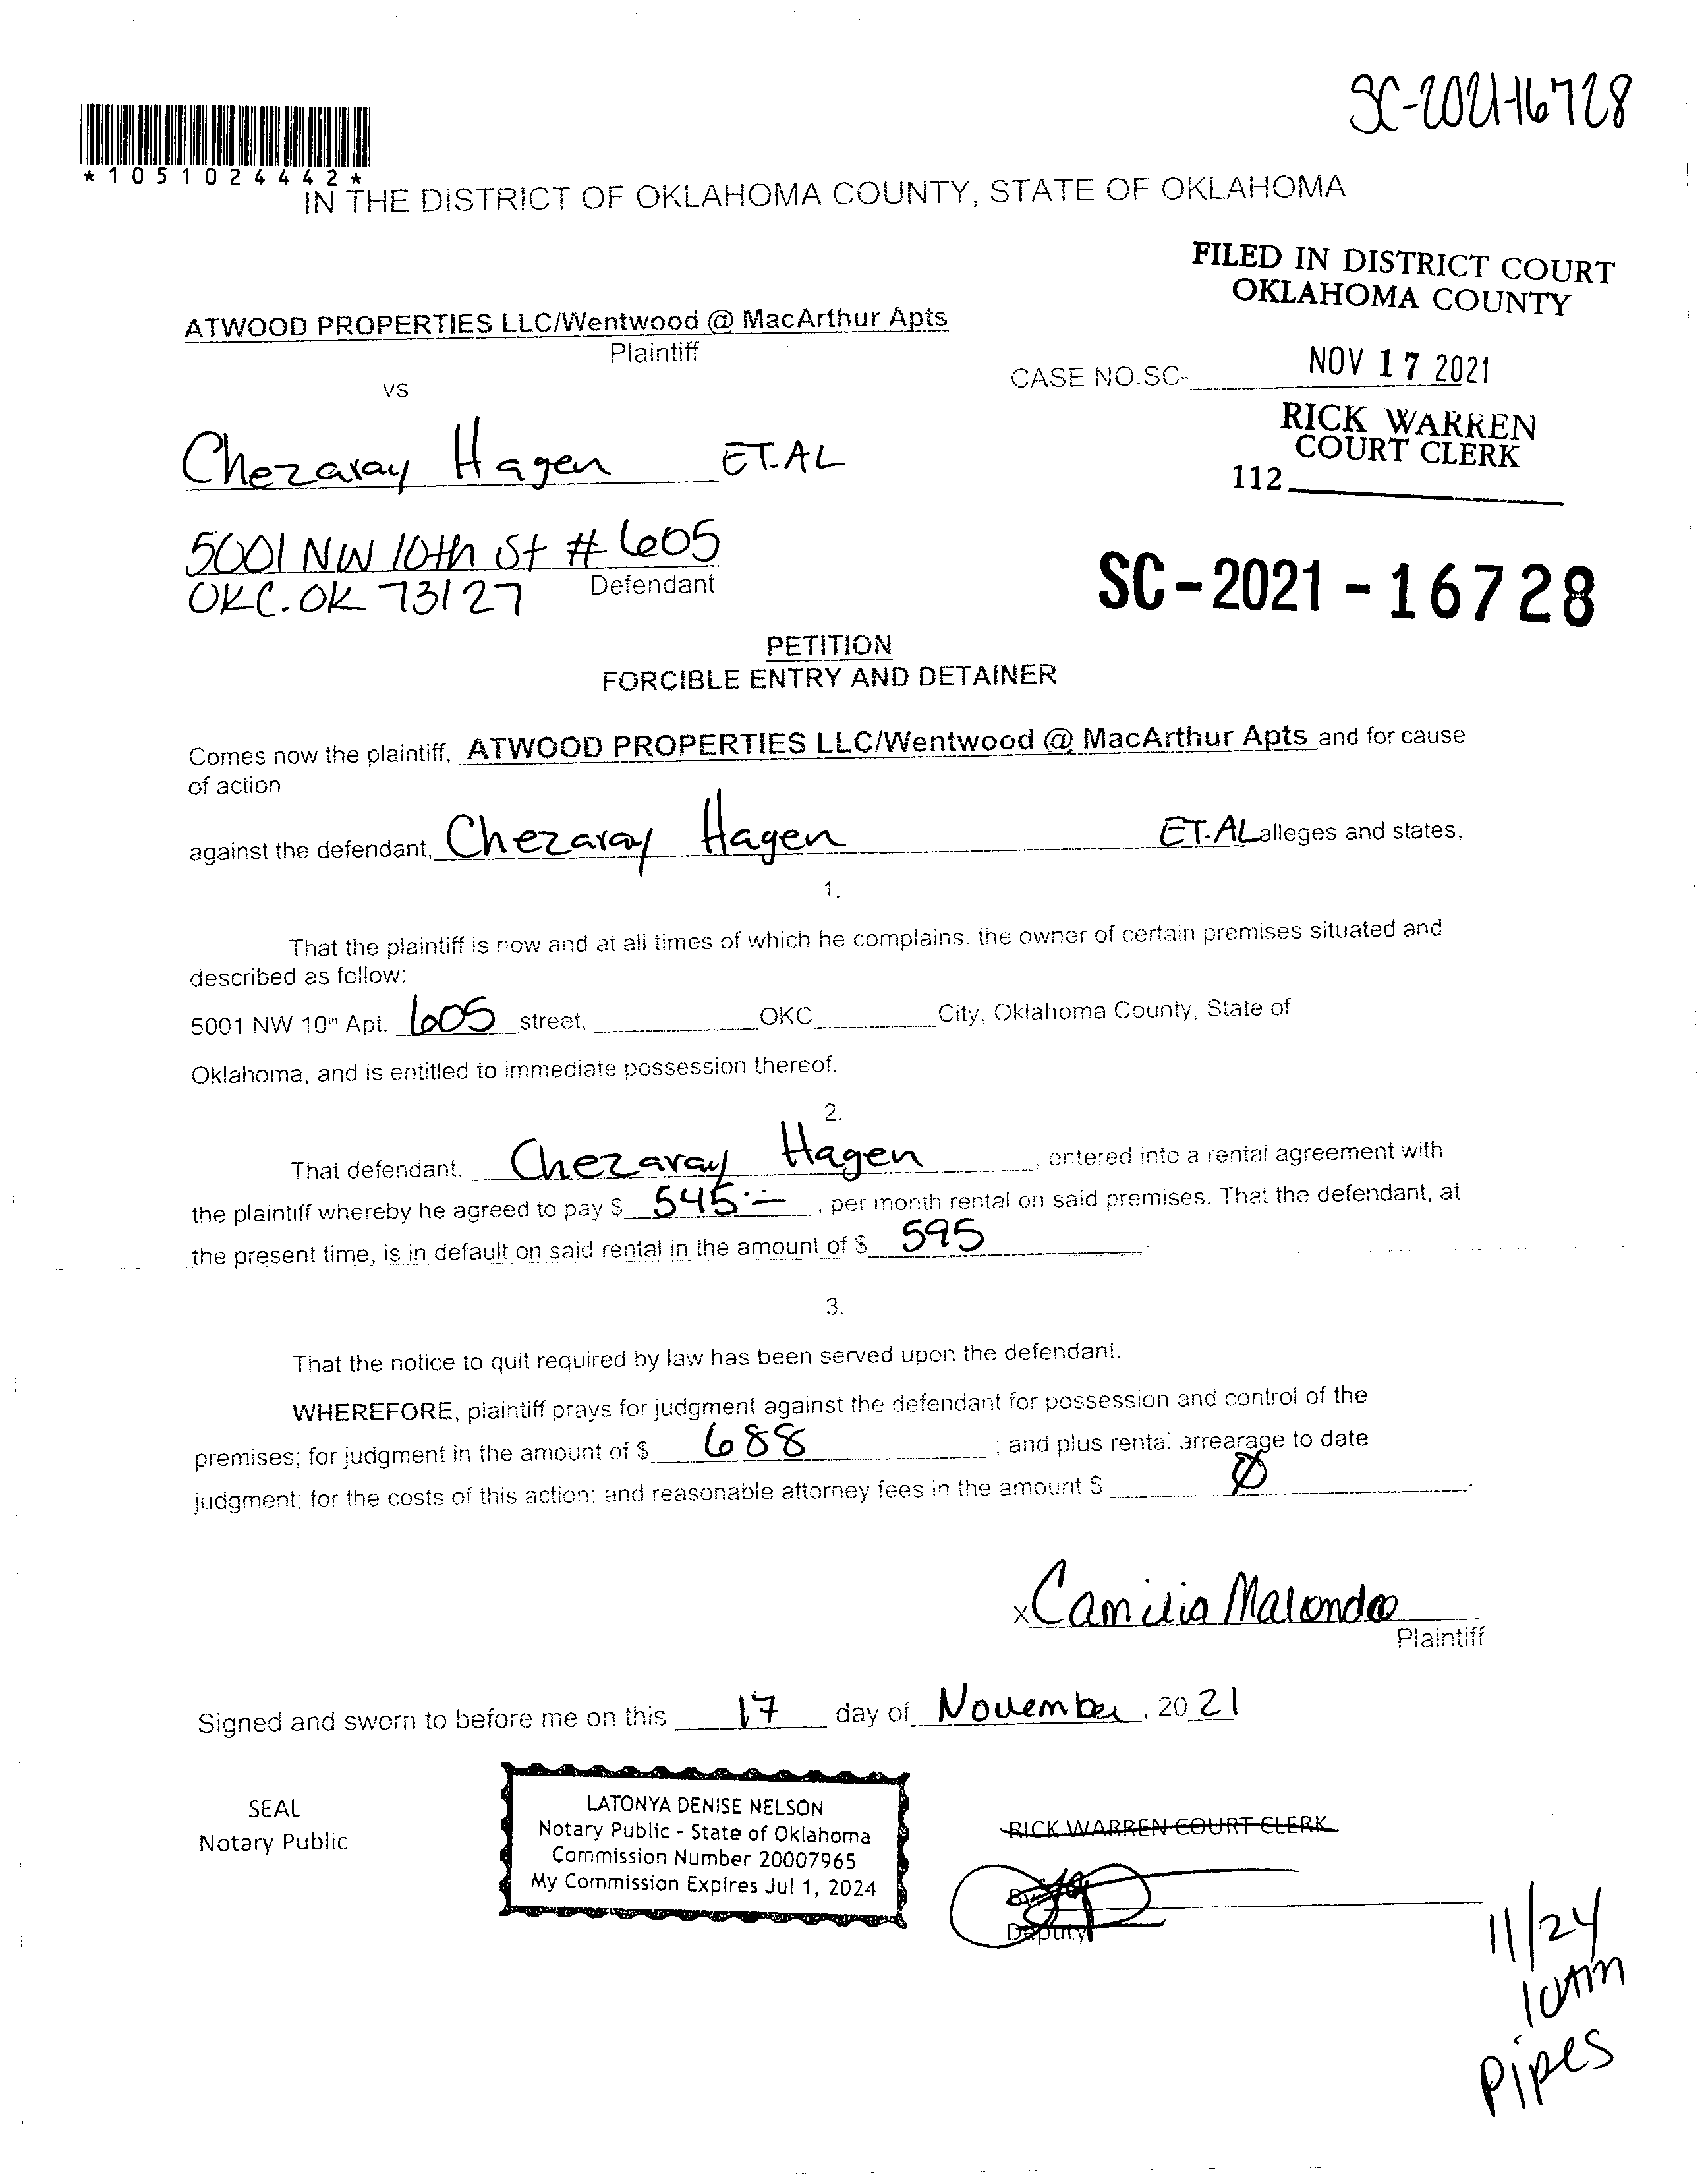 SC-2021-16728
*1051024442*
IN THE DISTRICT OF OKLAHOMA COUNTY, STATE OF OKLAHOMA
FILED IN DISTRICT COURT
OKLAHOMA COUNTY
ATWOOD PROPERTIES LLC/Wentwood @ MacArthur Apts
Plaintiff
vs
CASE NO.SC-
NOV 17 2021
RICK WARREN
COURT CLERK
112
Chezaray Hagen ET.AL
5001 NW 10th St # 605
OKC. OK 73127 Defendant
SC-2021-16728
PETITION
FORCIBLE ENTRY AND DETAINER
Comes now the plaintiff, ATWOOD PROPERTIES LLC/Wentwood @ MacArthur Apts and for cause
of action
against the defendant, Chezaray Hagen ET.AL alleges and states,
1.
That the plaintiff is now and at all times of which he complains, the owner of certain premises situated and
described as follow:
5001 NW 10th Apt. 605 street, OKC City, Oklahoma County, State of
Oklahoma, and is entitled to immediate possession thereof.
2.
That defendant, Chezaray Hagen, entered into a rental agreement with
the plaintiff whereby he agreed to pay $ 545.-, per month rental on said premises. That the defendant, at
the present time, is in default on said rental in the amount of $ 595.
3.
That the notice to quit required by law has been served upon the defendant.
WHEREFORE, plaintiff prays for judgment against the defendant for possession and control of the
premises; for judgment in the amount of $ 688; and plus rental arrearage to date
judgment; for the costs of this action; and reasonable attorney fees in the amount $ Ø.
x Camilia
Plaintiff
Signed and sworn to before me on this 17 day of November, 2021
SEAL
Notary Public
LATONYA DENISE NELSON
Notary Public - State of Oklahoma
Commission Number 20007965
My Commission Expires Jul 1, 2024
RICK WARREN COURT CLERK
By
Deputy
11/24
10AM
Pipes